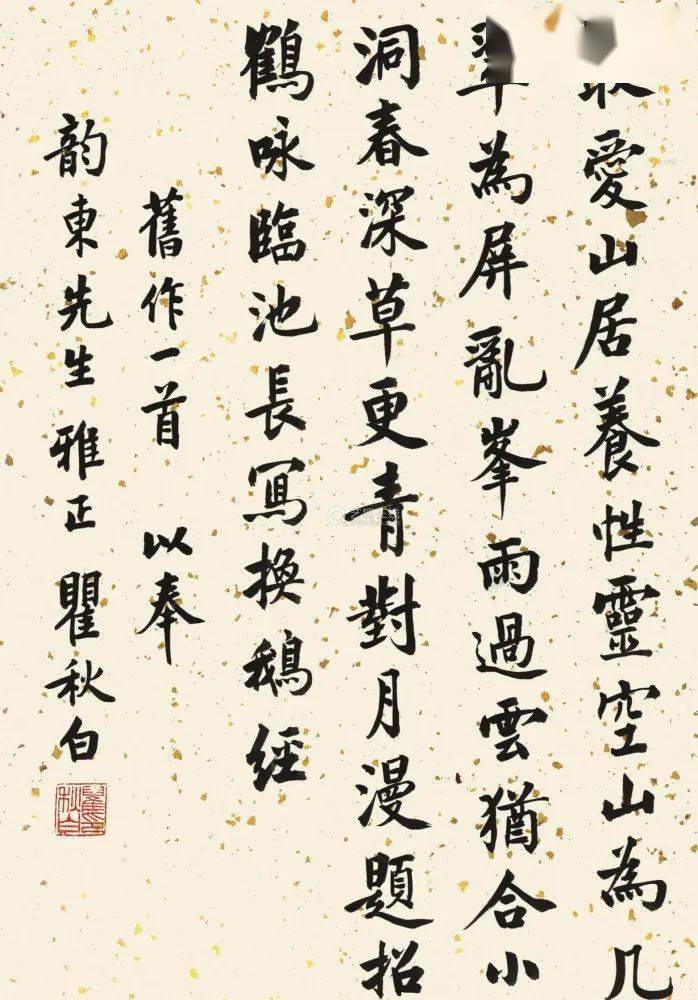 愛山居養性靈空山為几
翠為屏亂峯雨過雲猶合小
洞春深草更青對月漫題招
鶴咏臨池長寫換鵝經
舊作一首 以奉
韵東先生雅正 瞿秋白